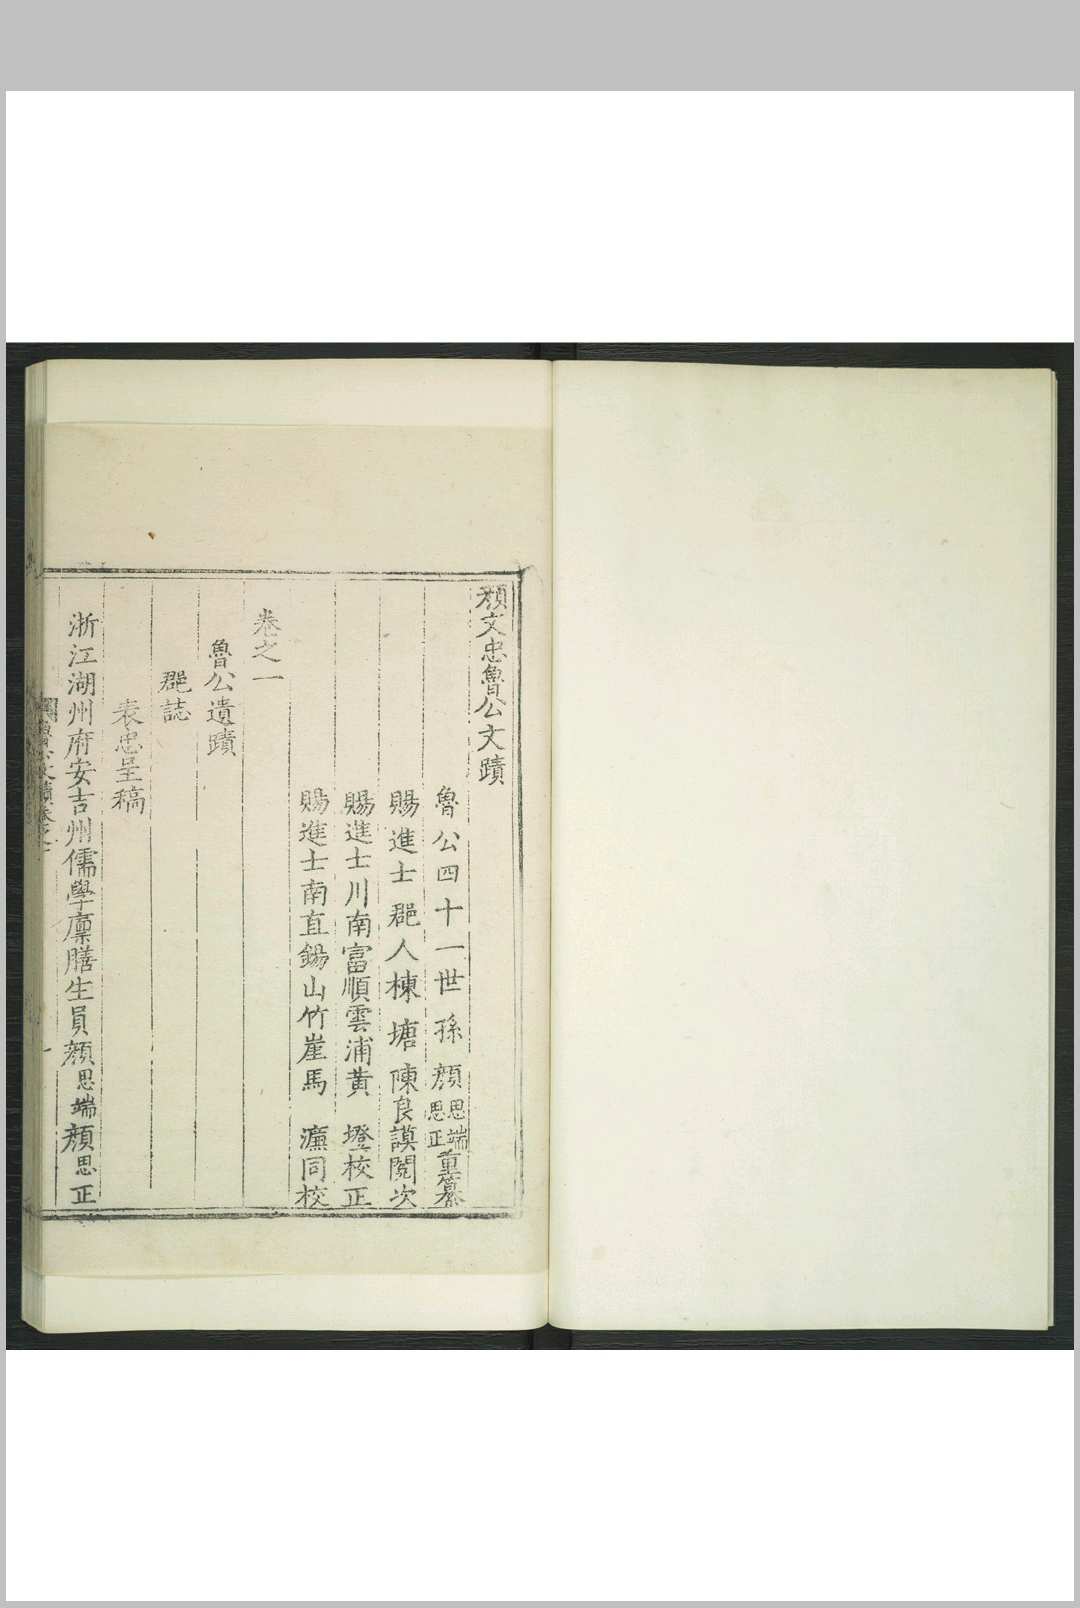 顏文忠魯公文蹟
魯公四十一世孫顏思端思正重纂
賜進士郡人棟塘陳良謨閱次
賜進士川南富順雲浦黃墱校正
賜進士南直錫山竹崖馬濂同校
卷之一
魯公遺蹟
郡誌
表忠呈稿
浙江湖州府安吉州儒學廩膳生員顏思端顏思正
魯公文蹟卷之一
一